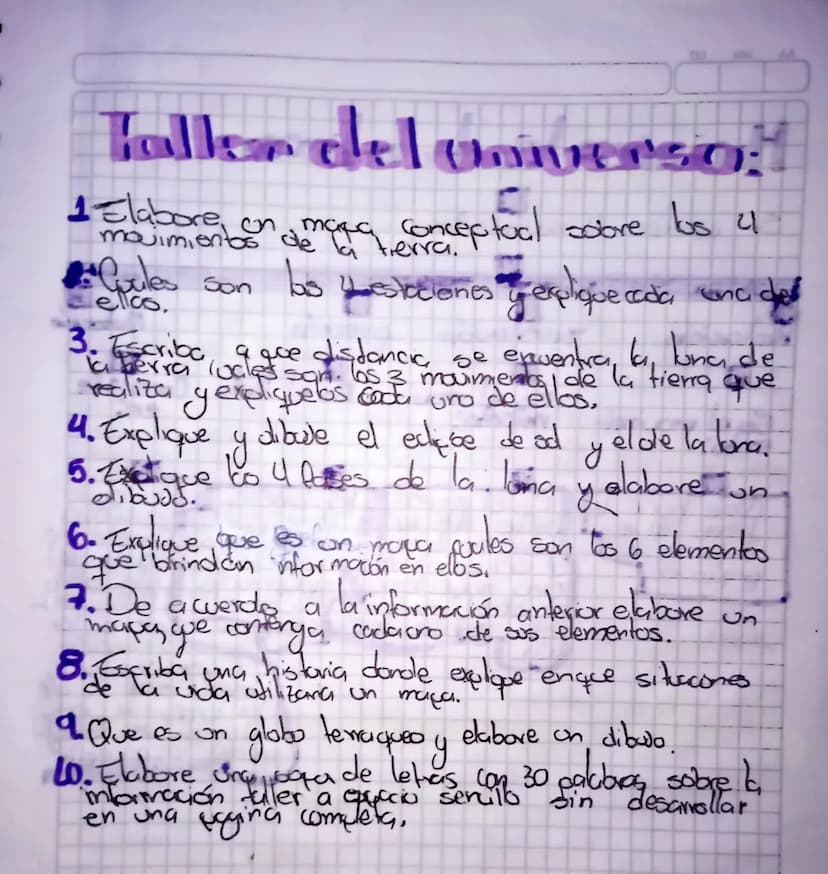 Taller del universo:
1 Elabore un mapa conceptual sobre los 4
movimientos de la tierra.
Cuales son los 4 estaciones y explique cada una de
ellas.
3. Escriba a que distancia se encuentra la luna de
la tierra cuales son los 3 movimientos de la tierra que
realiza y expliquelos cada uno de ellos.
4. Explique y dibuje el eclipse de sol y el de la luna.
5. Explique los 4 fases de la luna y elabore un
dibujo.
6. Explique que es un mapa cuales son los 6 elementos
que brindan información en ellos.
7. De acuerdo a la información anterior elabore un
mapa que contenga cada uno de sus elementos.
8. Escriba una historia donde explique en que situaciones
de la vida utilizaria un mapa.
9. Que es un globo terraqueo y elabore un dibujo.
10. Elabore una sopa de letras con 30 palabras sobre la
información taller a espacio sencillo sin desarrollar
en una pagina completa.